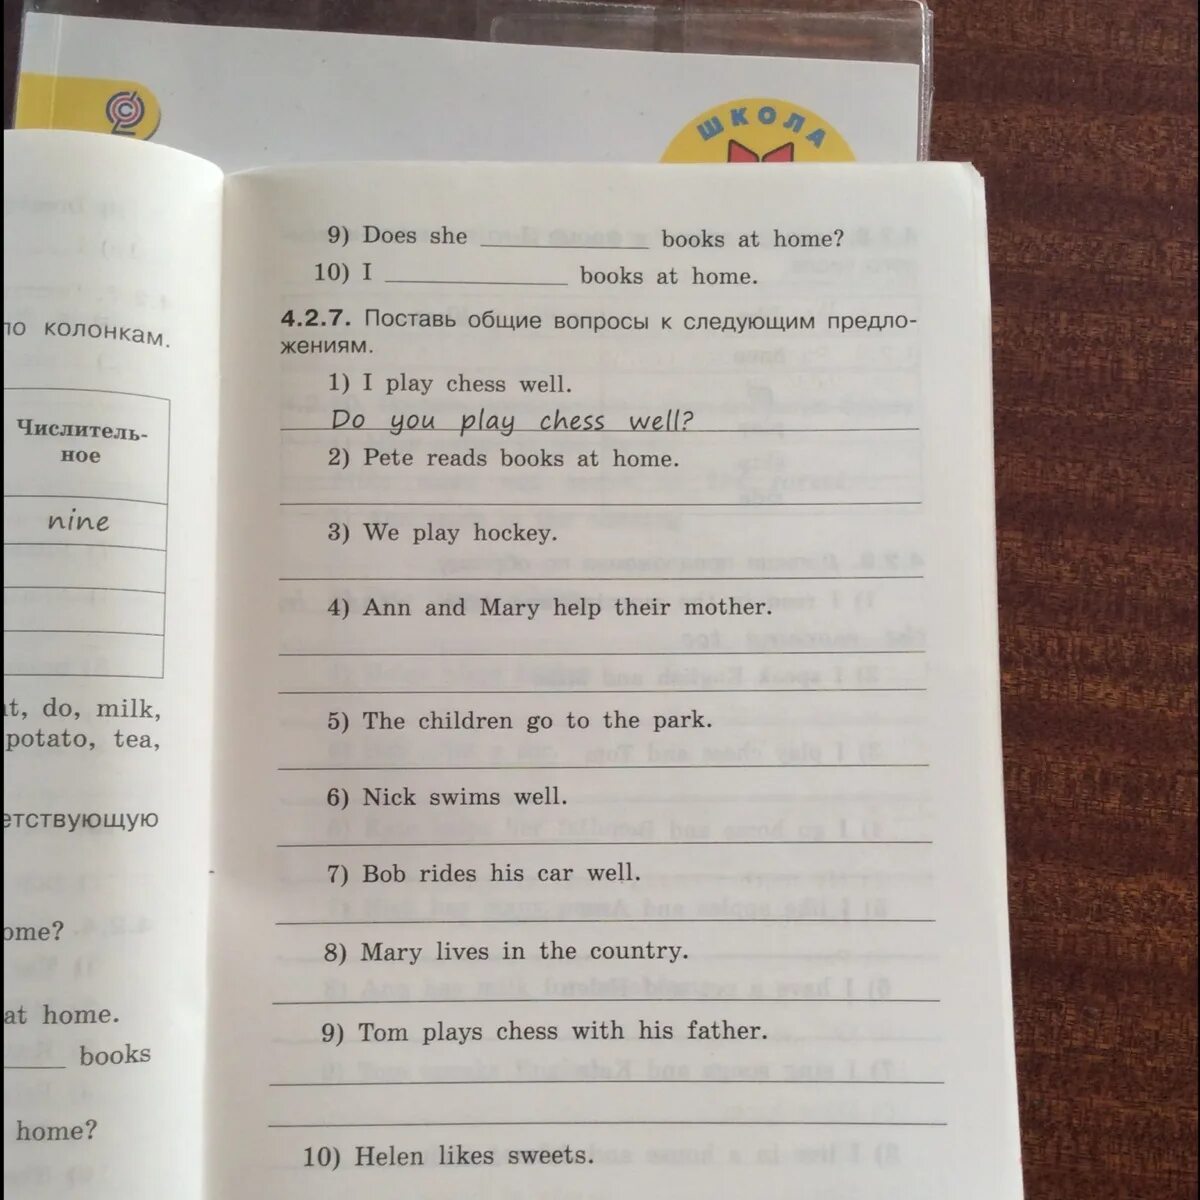 ШКОЛА
по колонкам.
Числитель-
ное
nine
at, do, milk,
potato, tea,
етствующую
ome?
at home.
books
home?
9) Does she ____________ books at home?
10) I ____________ books at home.
4.2.7. Поставь общие вопросы к следующим предло-
жениям.
1) I play chess well.
Do you play chess well?
2) Pete reads books at home.
3) We play hockey.
4) Ann and Mary help their mother.
5) The children go to the park.
6) Nick swims well.
7) Bob rides his car well.
8) Mary lives in the country.
9) Tom plays chess with his father.
10) Helen likes sweets.